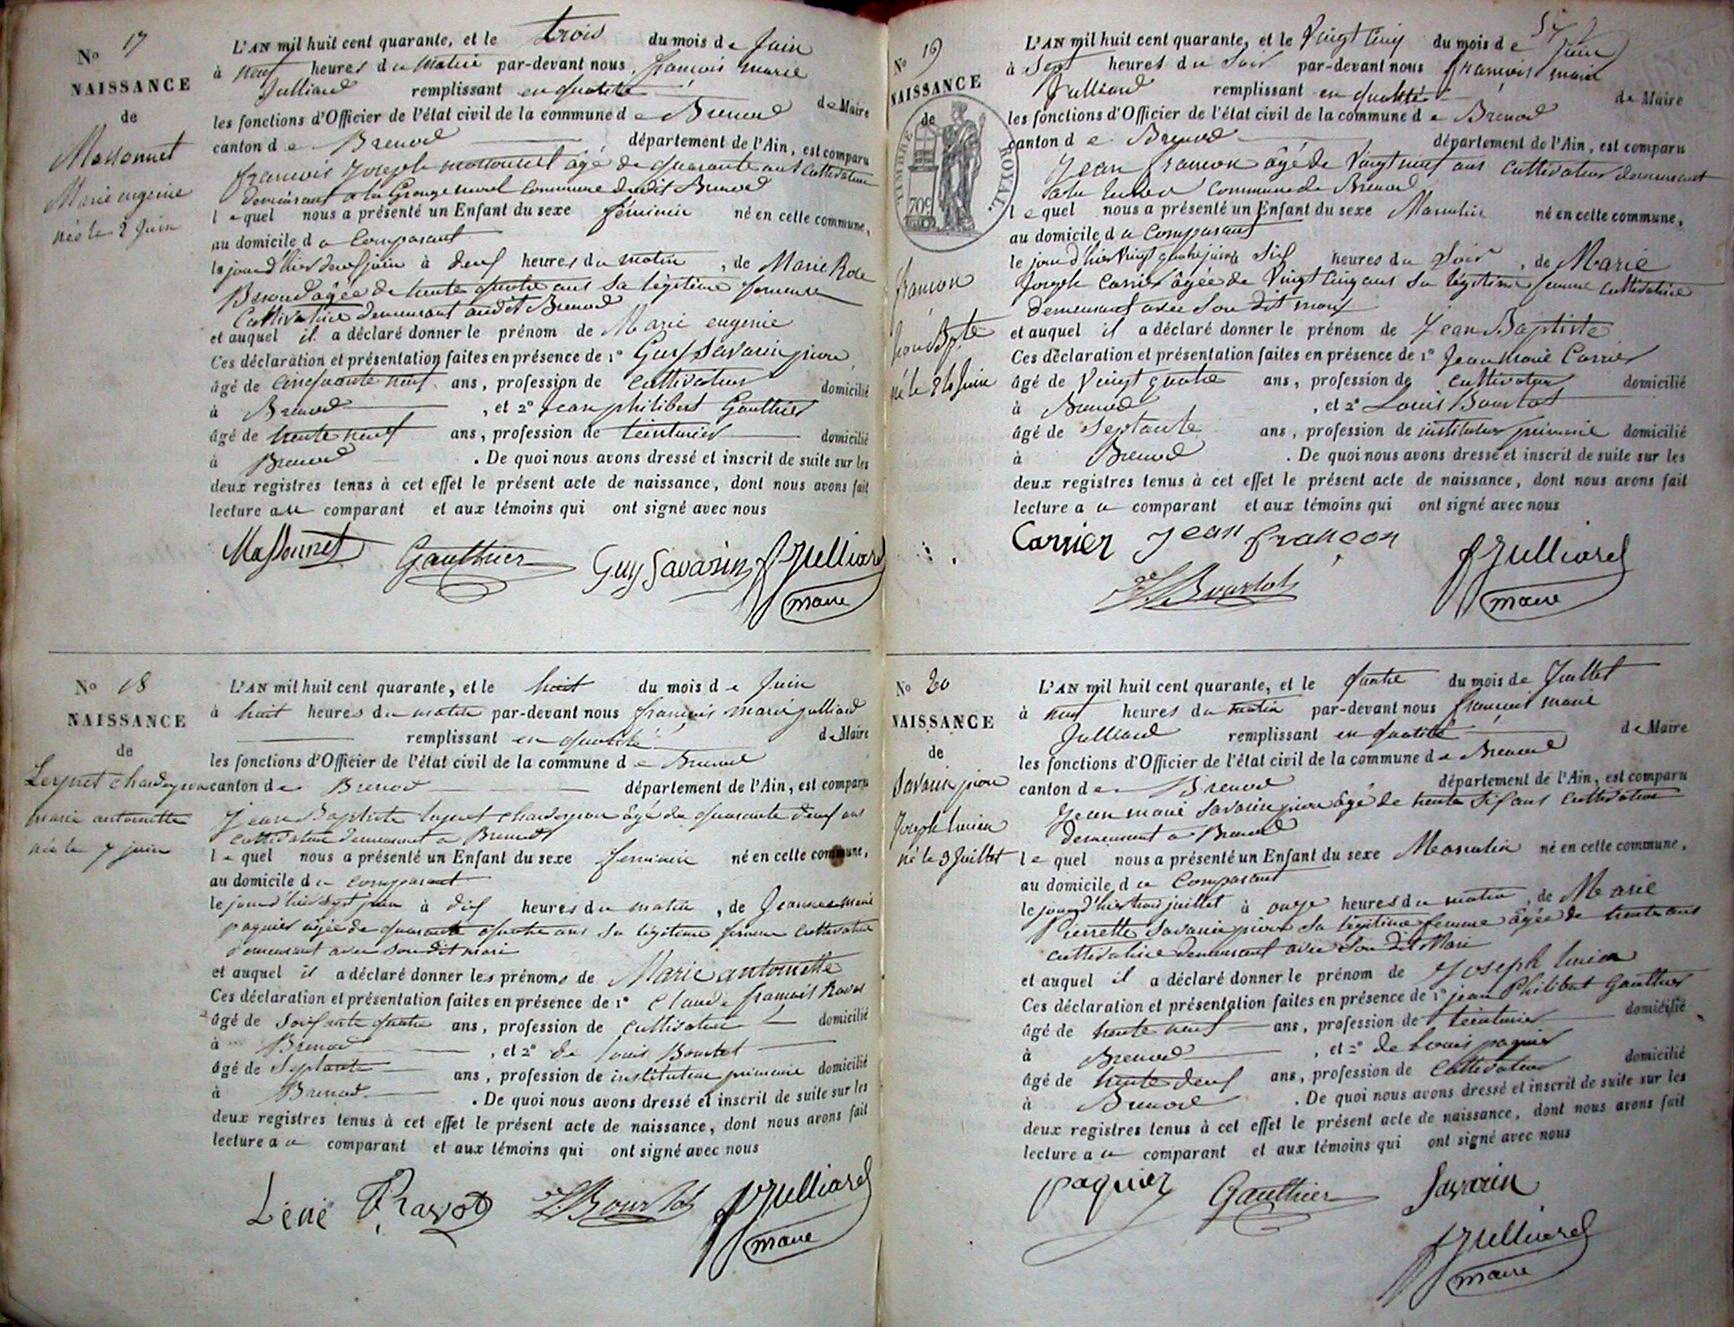 N° 17
NAISSANCE
de
Massonnet
Marie eugenie
née le 2 Juin
L'AN mil huit cent quarante, et le trois du mois de Juin
à neuf heures du matin par-devant nous françois marie
Julliard remplissant en qualité de Maire
les fonctions d'Officier de l'état civil de la commune de Brenod
canton de Brenod département de l'Ain, est comparu
françois Joseph massonnet âgé de quarante ans cultivateur
demeurant a la commune dudit Brenod
lequel nous a présenté un Enfant du sexe féminin né en cette commune,
au domicile du comparant
le jour d'hier deux juin à deux heures du matin, de Marie Rose
âgée de trente quatre ans sa légitime femme
Cultivatrice demeurant audit Brenod
et auquel il a déclaré donner le prénom de Marie eugenie
Ces déclaration et présentation faites en présence de 1° Guy Savarin
âgé de cinquante neuf ans, profession de cultivateur domicilié
à Brenod, et 2° Jean philibert Gauthier
âgé de trente neuf ans, profession de teinturier domicilié
à Brenod. De quoi nous avons dressé et inscrit de suite sur les
deux registres tenus à cet effet le présent acte de naissance, dont nous avons fait
lecture au comparant et aux témoins qui ont signé avec nous
Massonnet Gauthier Guy Savarin fJulliard
maire
N° 18
NAISSANCE
de
chardeyron
marie antoinette
née le 7 juin
L'AN mil huit cent quarante, et le huit du mois de Juin
à huit heures du matin par-devant nous françois marie julliard
remplissant en qualité de Maire
les fonctions d'Officier de l'état civil de la commune de Brenod
canton de Brenod département de l'Ain, est comparu
Jean Baptiste chardeyron âgé de quarante deux ans
cultivateur demeurant a Brenod
lequel nous a présenté un Enfant du sexe feminin né en cette commune,
au domicile du comparant
le jour d'hier sept juin à dix heures du matin, de Jeanne marie
paquier âgée de quarante quatre ans sa légitime femme cultivatrice
demeurant avec son dit mari
et auquel il a déclaré donner les prénoms de Marie antoinette
Ces déclaration et présentation faites en présence de 1° Claude françois Ravot
âgé de soixante quatre ans, profession de cultivateur domicilié
à Brenod, et 2° de Louis Bourlot
âgé de Septante ans, profession de instituteur primaire domicilié
à Brenod. De quoi nous avons dressé et inscrit de suite sur les
deux registres tenus à cet effet le présent acte de naissance, dont nous avons fait
lecture au comparant et aux témoins qui ont signé avec nous
Ravot Bourlot fJulliard
maire
N° 19
NAISSANCE
de
TIMBRE ROYAL.
70c
françon
Jean Bpte
né le 24 Juin
L'AN mil huit cent quarante, et le Vingt cinq du mois de Juin
à Sept heures du Soir par-devant nous françois marie
Julliard remplissant en qualité de Maire
les fonctions d'Officier de l'état civil de la commune de Brenod
canton de Brenod département de l'Ain, est comparu
Jean françon âgé de Vingt neuf ans cultivateur demeurant
commune de Brenod
lequel nous a présenté un Enfant du sexe Masculin né en cette commune,
au domicile du comparant
le jour d'hier Vingt quatre juin à Six heures du Soir, de Marie
Joseph Carrier âgée de Vingt cinq ans sa légitime femme cultivatrice
demeurant avec Son dit mari
et auquel il a déclaré donner le prénom de Jean Baptiste
Ces déclaration et présentation faites en présence de 1° Jean Marie Carrier
âgé de Vingt quatre ans, profession de cultivateur domicilié
à Brenod, et 2° Louis Bourlot
âgé de Septante ans, profession de instituteur primaire domicilié
à Brenod. De quoi nous avons dressé et inscrit de suite sur les
deux registres tenus à cet effet le présent acte de naissance, dont nous avons fait
lecture au comparant et aux témoins qui ont signé avec nous
Carrier Jean françon fJulliard
Bourlot maire
N° 20
NAISSANCE
de
Savarin
Joseph lucien
né le 3 Juillet
L'AN mil huit cent quarante, et le quatre du mois de Juillet
à neuf heures du matin par-devant nous françois marie
Julliard remplissant en qualité de Maire
les fonctions d'Officier de l'état civil de la commune de Brenod
canton de Brenod département de l'Ain, est comparu
Jean marie Savarin âgé de trente Six ans cultivateur
demeurant a Brenod
lequel nous a présenté un Enfant du sexe Masculin né en cette commune,
au domicile du comparant
le jour d'hier trois juillet à onze heures du matin, de Marie
Pierrette Savarin sa légitime femme âgée de trente ans
cultivatrice demeurant avec Son dit Mari
et auquel il a déclaré donner le prénom de Joseph lucien
Ces déclaration et présentation faites en présence de 1° jean Philibert Gauthier
âgé de trente neuf ans, profession de teinturier domicilié
à Brenod, et 2° de Louis paquier
âgé de trente deux ans, profession de Cultivateur domicilié
à Brenod. De quoi nous avons dressé et inscrit de suite sur les
deux registres tenus à cet effet le présent acte de naissance, dont nous avons fait
lecture au comparant et aux témoins qui ont signé avec nous
paquier Gauthier Savarin
fJulliard
maire